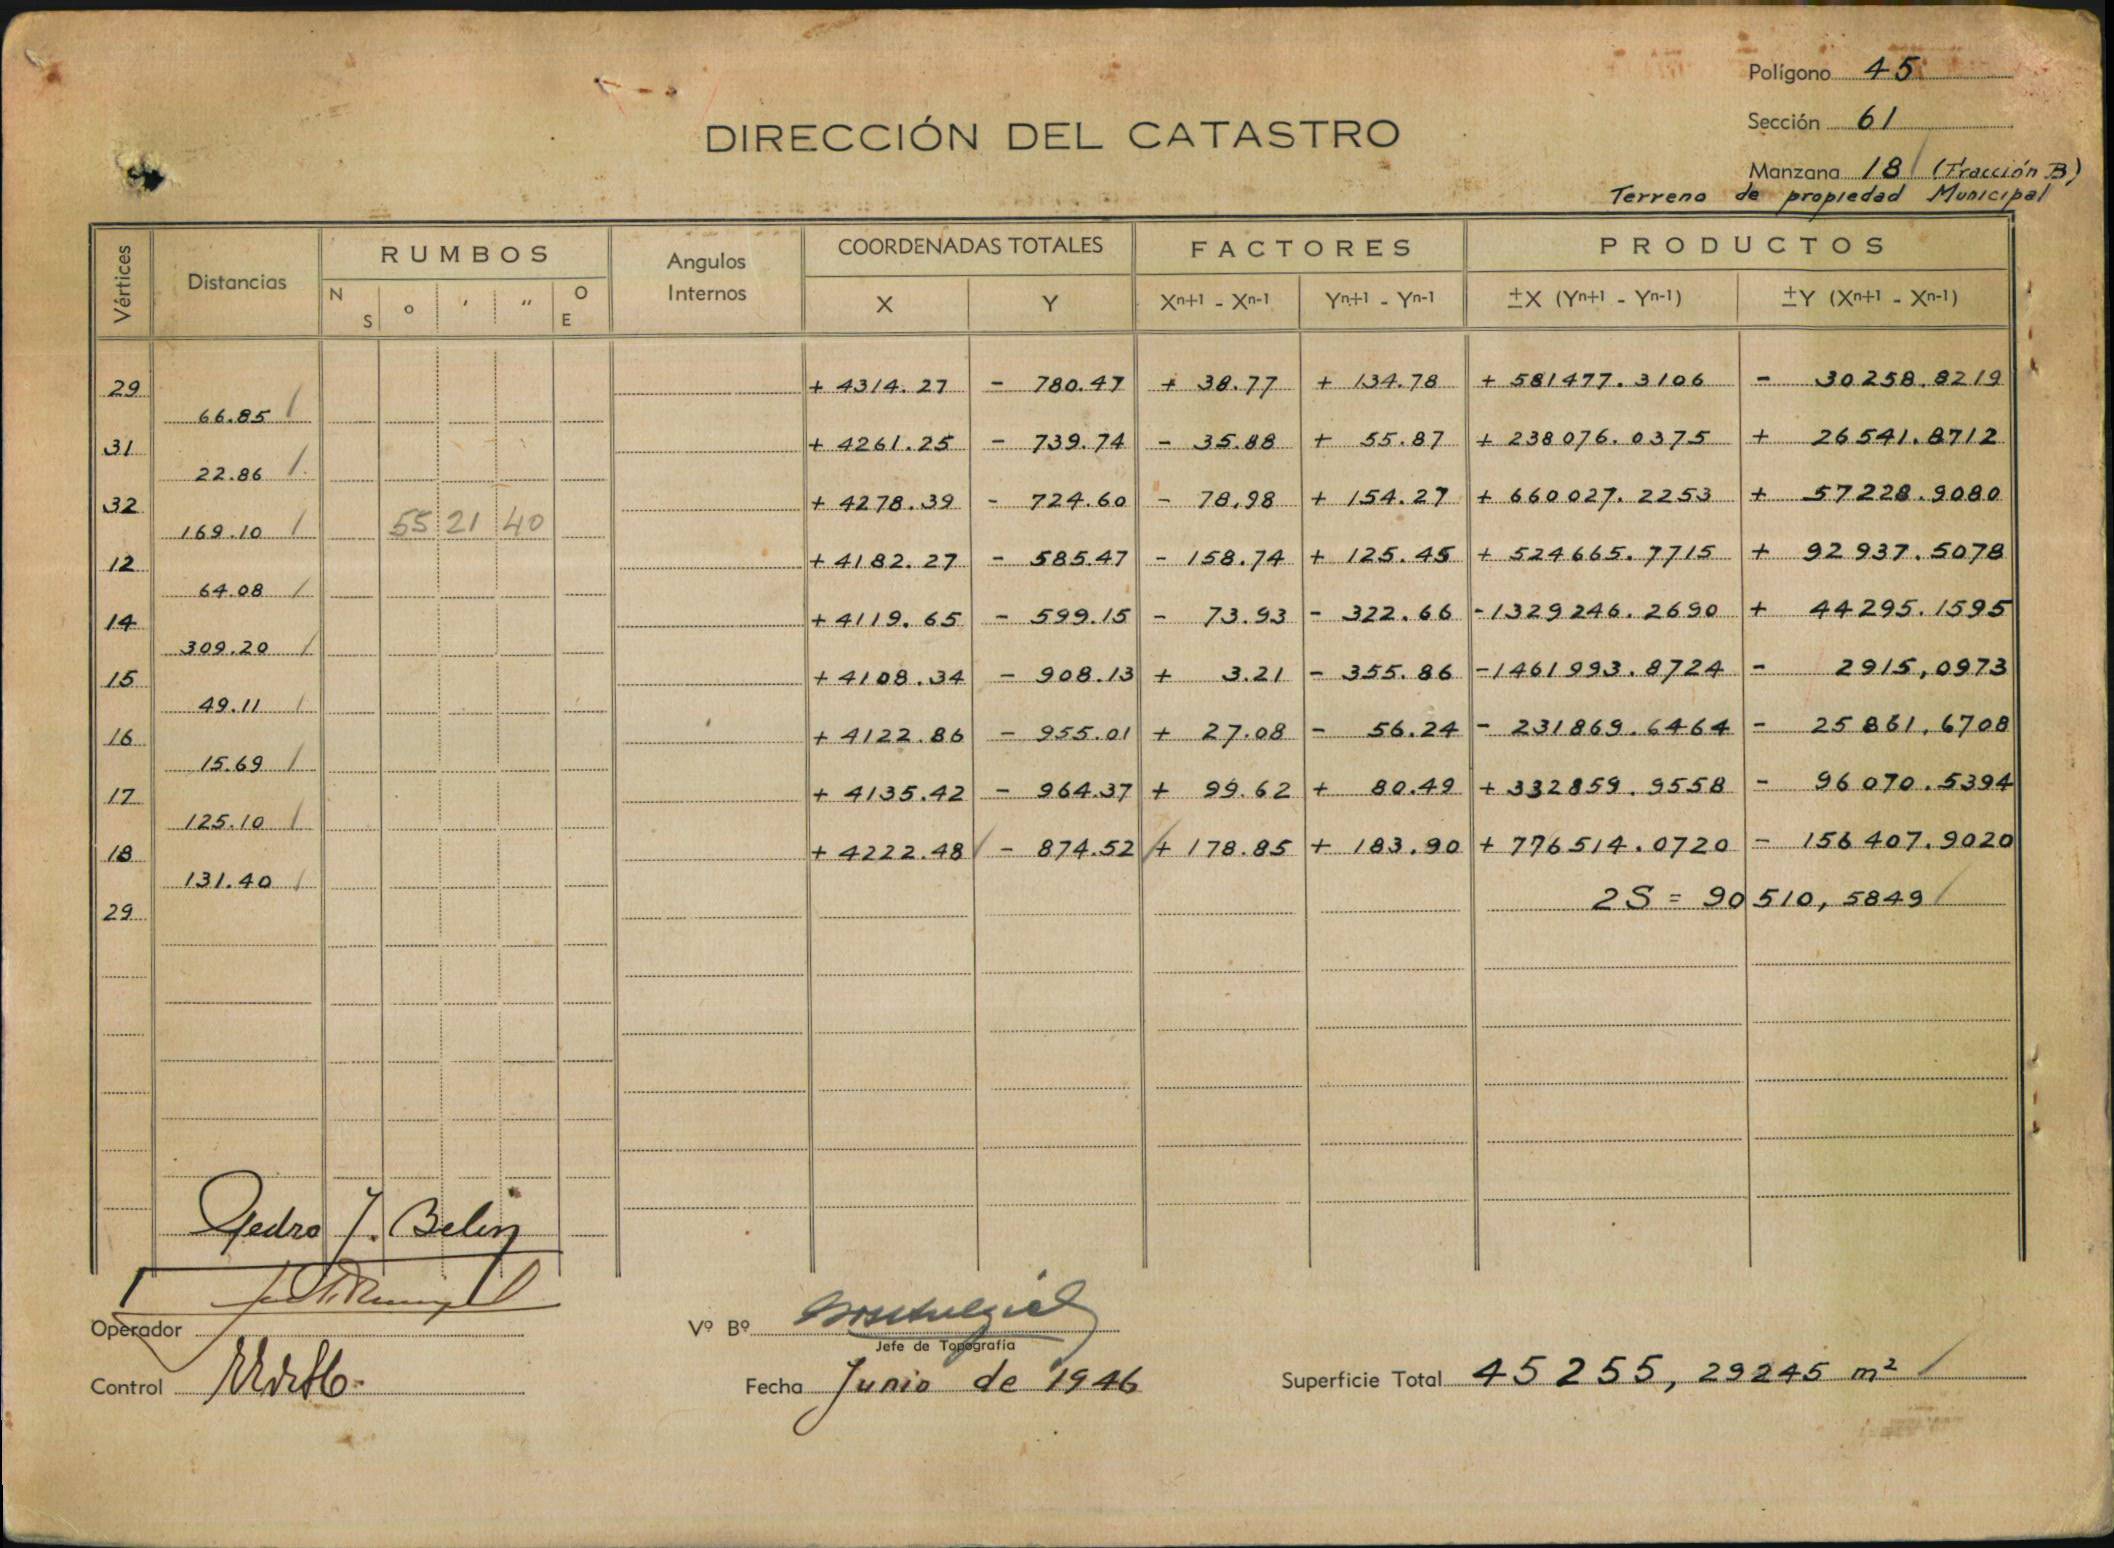 Polígono 45
Sección 61
DIRECCIÓN DEL CATASTRO
Manzana 18 (Fracción B)
Terreno de propiedad Municipal
Vértices Distancias RUMBOS Angulos Internos COORDENADAS TOTALES FACTORES PRODUCTOS
N S o ′ ″ O E X Y Xn+1 - Xn-1 Yn+1 - Yn-1 ±X (Yn+1 - Yn-1) ±Y (Xn+1 - Xn-1)
29 + 4314.27 - 780.47 + 38.77 + 134.78 + 581477.3106 - 30258.8219
66.85
31 + 4261.25 - 739.74 - 35.88 + 55.87 + 238076.0375 + 26541.8712
22.86
32 + 4278.39 - 724.60 - 78.98 + 154.27 + 660027.2253 + 57228.9080
169.10 55 21 40
12 + 4182.27 - 585.47 - 158.74 + 125.45 + 524665.7715 + 92937.5078
64.08
14 + 4119.65 - 599.15 - 73.93 - 322.66 - 1329246.2690 + 44295.1595
309.20
15 + 4108.34 - 908.13 + 3.21 - 355.86 - 1461993.8724 - 2915,0973
49.11
16 + 4122.86 - 955.01 + 27.08 - 56.24 - 231869.6464 - 25861,6708
15.69
17 + 4135.42 - 964.37 + 99.62 + 80.49 + 332859.9558 - 96070.5394
125.10
18 + 4222.48 - 874.52 + 178.85 + 183.90 + 776514.0720 - 156407.9020
131.40
29 2S = 90510,5849
Pedro J. Belin
Operador
Vº Bº
Jefe de Topografia
Control
Fecha Junio de 1946
Superficie Total 45255,29245 m²